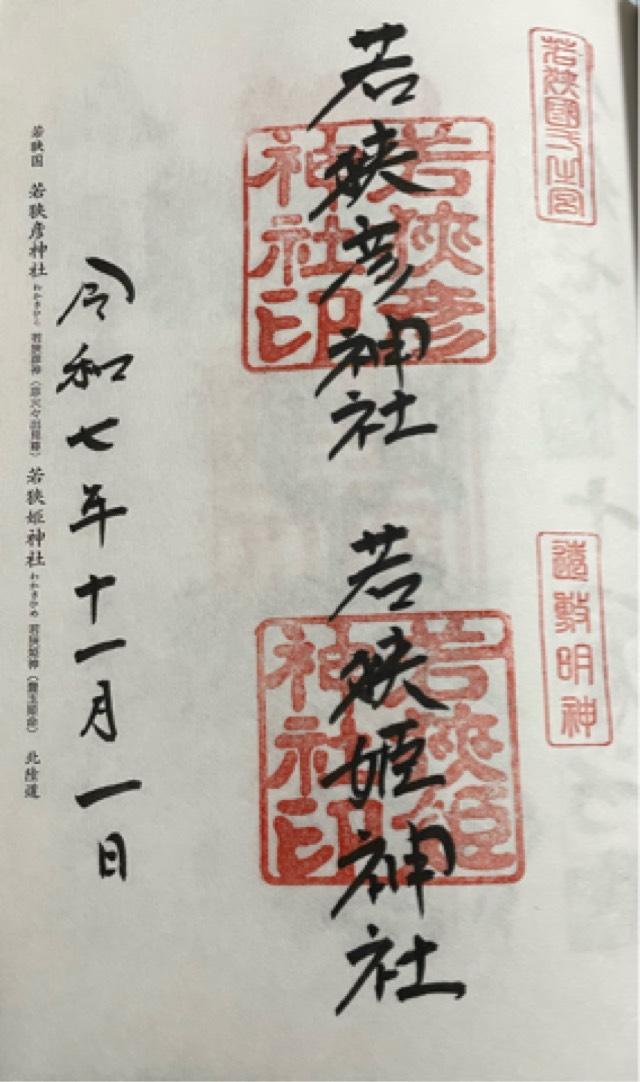 若狭國一之宮
遠敷明神
若狭彦神社
若狭彦神社印
若狭姫神社
若狭姫神社印
令和七年十一月一日
若狭国 若狭彦神社 わかさひこ 若狭彦神 若狭姫神社 わかさひめ 若狭姫神 北陸道